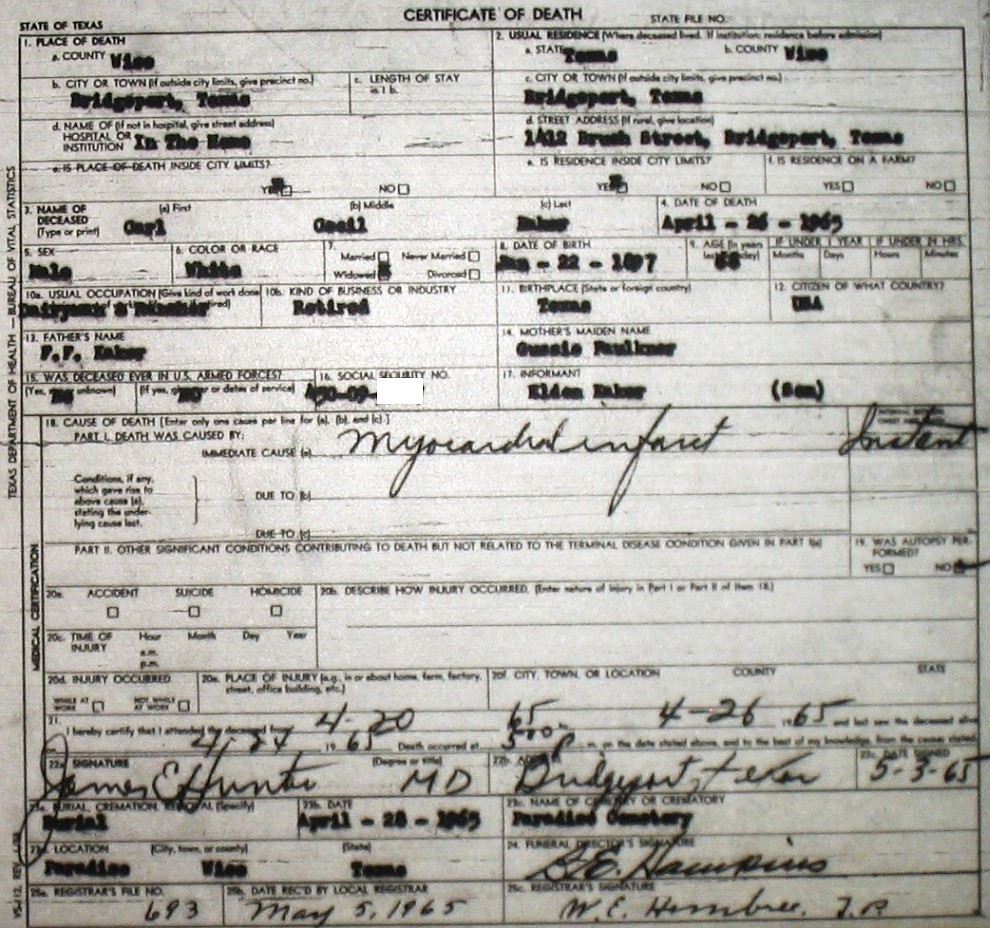 CERTIFICATE OF DEATH
STATE OF TEXAS
STATE FILE NO.
TEXAS DEPARTMENT OF HEALTH — BUREAU OF VITAL STATISTICS
1. PLACE OF DEATH
a. COUNTY Wise
2. USUAL RESIDENCE (Where deceased lived. If institution: residence before admission)
a. STATE Texas b. COUNTY Wise
b. CITY OR TOWN (If outside city limits, give precinct no.)
Bridgeport, Texas
c. LENGTH OF STAY
in 1 b.
c. CITY OR TOWN (If outside city limits, give precinct no.)
Bridgeport, Texas
d. NAME OF (If not in hospital, give street address)
HOSPITAL OR
INSTITUTION In The Home
d. STREET ADDRESS (If rural, give location)
1412 Brush Street, Bridgeport, Texas
e. IS PLACE OF DEATH INSIDE CITY LIMITS?
YES NO
e. IS RESIDENCE INSIDE CITY LIMITS?
YES NO
f. IS RESIDENCE ON A FARM?
YES NO
3. NAME OF
DECEASED
(Type or print)
(a) First (b) Middle (c) Last
Carl Cecil
4. DATE OF DEATH
April - 26 - 1965
5. SEX
Male
6. COLOR OR RACE
White
7.
Married Never Married
Widowed Divorced
8. DATE OF BIRTH
Jan - 22 - 1897
9. AGE (In years
last birthday)
IF UNDER 1 YEAR IF UNDER 24 HRS.
Months Days Hours Minutes
10a. USUAL OCCUPATION (Give kind of work done
Dairyman & Rancher
10b. KIND OF BUSINESS OR INDUSTRY
Retired
11. BIRTHPLACE (State or foreign country)
Texas
12. CITIZEN OF WHAT COUNTRY?
USA
13. FATHER'S NAME
F.F.
14. MOTHER'S MAIDEN NAME
Gussie Faulkner
15. WAS DECEASED EVER IN U.S. ARMED FORCES?
(Yes, no, or unknown) (If yes, give war or dates of service)
No NO
16. SOCIAL SECURITY NO.
450-09-
17. INFORMANT
Elden (Son)
MEDICAL CERTIFICATION
18. CAUSE OF DEATH [Enter only one cause per line for (a), (b), and (c).]
PART I. DEATH WAS CAUSED BY:
IMMEDIATE CAUSE (a) Myocardial infarct Instant
Conditions, if any,
which gave rise to
above cause (a),
stating the under-
lying cause last.
DUE TO (b)
DUE TO (c)
PART II. OTHER SIGNIFICANT CONDITIONS CONTRIBUTING TO DEATH BUT NOT RELATED TO THE TERMINAL DISEASE CONDITION GIVEN IN PART I(a)
19. WAS AUTOPSY PER-
FORMED?
YES NO
20a. ACCIDENT SUICIDE HOMICIDE
20b. DESCRIBE HOW INJURY OCCURRED. (Enter nature of injury in Part I or Part II of Item 18.)
20c. TIME OF
INJURY
Hour Month Day Year
a.m.
p.m.
20d. INJURY OCCURRED
WHILE AT
WORK
NOT WHILE
AT WORK
20e. PLACE OF INJURY (e.g., in or about home, farm, factory,
street, office building, etc.)
20f. CITY, TOWN, OR LOCATION COUNTY STATE
21.
I hereby certify that I attended the deceased from 4-20 65 4-26 1965 and last saw the deceased alive
4-24 1965 Death occurred at 5:00 P m, on the date stated above, and to the best of my knowledge, from the causes stated.
22a. SIGNATURE (Degree or title)
James E Hunter MD
22b. ADDRESS
Bridgeport, Texas
22c. DATE SIGNED
5-3-65
23a. BURIAL, CREMATION, REMOVAL (Specify)
Burial
23b. DATE
April - 28 - 1965
23c. NAME OF CEMETERY OR CREMATORY
Paradise Cemetery
23d. LOCATION (City, town, or county) (State)
Paradise Wise Texas
24. FUNERAL DIRECTOR'S SIGNATURE
B.E. Hawkins
25a. REGISTRAR'S FILE NO.
693
25b. DATE REC'D BY LOCAL REGISTRAR
May 5, 1965
25c. REGISTRAR'S SIGNATURE
W. E. Hembree, J.P.